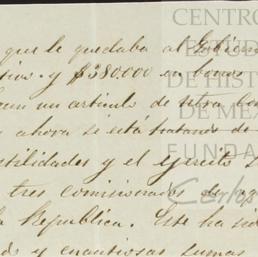 que le quedaba al Gobierno
y $380.000 en bonos
un articulo de
y ahora se está tratando de
y el ejercito
tres comisionados de
Republica. Este ha sido
y cuantiosas sumas
CENTRO
ESTUD
DE HIST
DE MÉX
FUNDA
Carlos